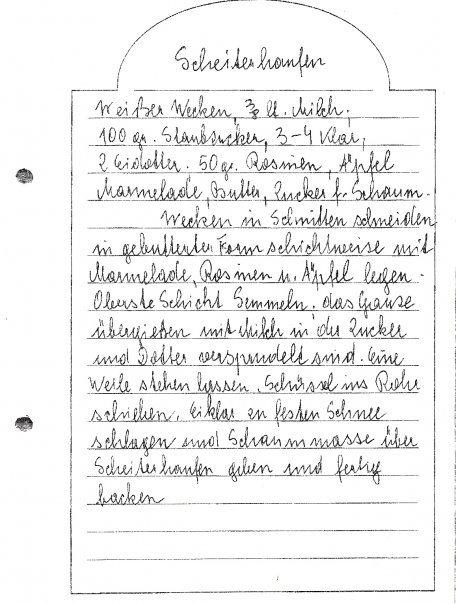 Scheiterhaufen
Weißer Wecken, ¾ lt. Milch,
100 gr. Staubzucker, 3-4 Klar,
2 Eidotter, 50 gr. Rosinen, Äpfel
Marmelade, Butter, Zucker f. Schaum.
Wecken in Schnitten schneiden
in gebutterter Form schichtweise mit
Marmelade, Rosinen u. Äpfel legen.
Oberste Schicht Semmeln. das Ganze
übergießen mit Milch in der Zucker
und Dotter versprudelt sind. Eine
Weile stehen lassen. Schüssel ins Rohr
schieben. Eiklar zu festen Schnee
schlagen und Schaummasse über
Scheiterhaufen geben und fertig
backen